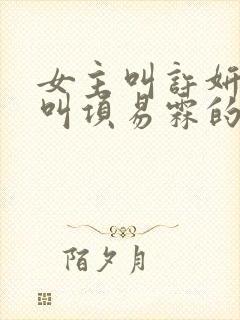 女主叫许妍
叫项易霖的
陌夕月